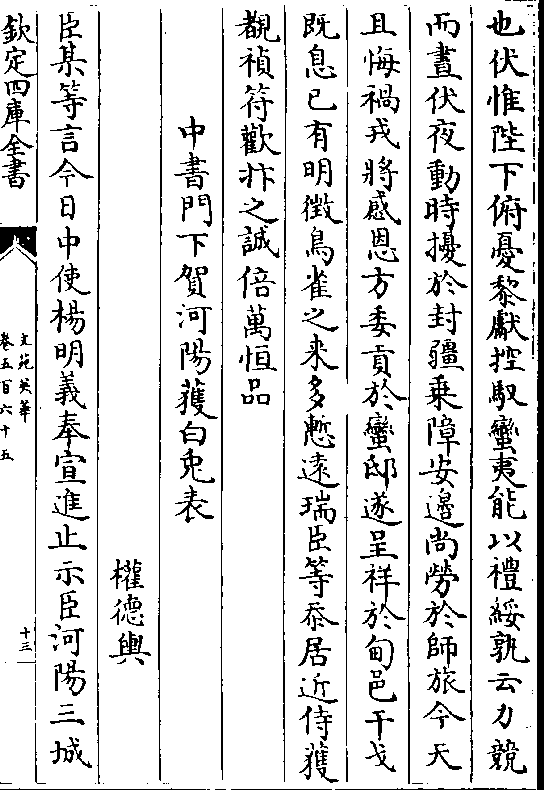 也伏惟陛下俯憂黎獻控馭蠻夷能以禮綏孰云力競
而晝伏夜動時擾於封疆乗障安邊尚勞於師旅今天
且悔禍戎將感恩方委貢於蠻邸遂呈祥於甸邑干戈
既息已有明徵鳥雀之来多慙逺瑞臣等忝居近侍獲
覩禎符歡抃之誠倍萬恒品
中書門下賀河陽獲白兎表
權德輿
臣某等言今日中使楊明義奉宣進止示臣河陽三城
欽定四庫全書
文苑英華
卷五百六十五
十三